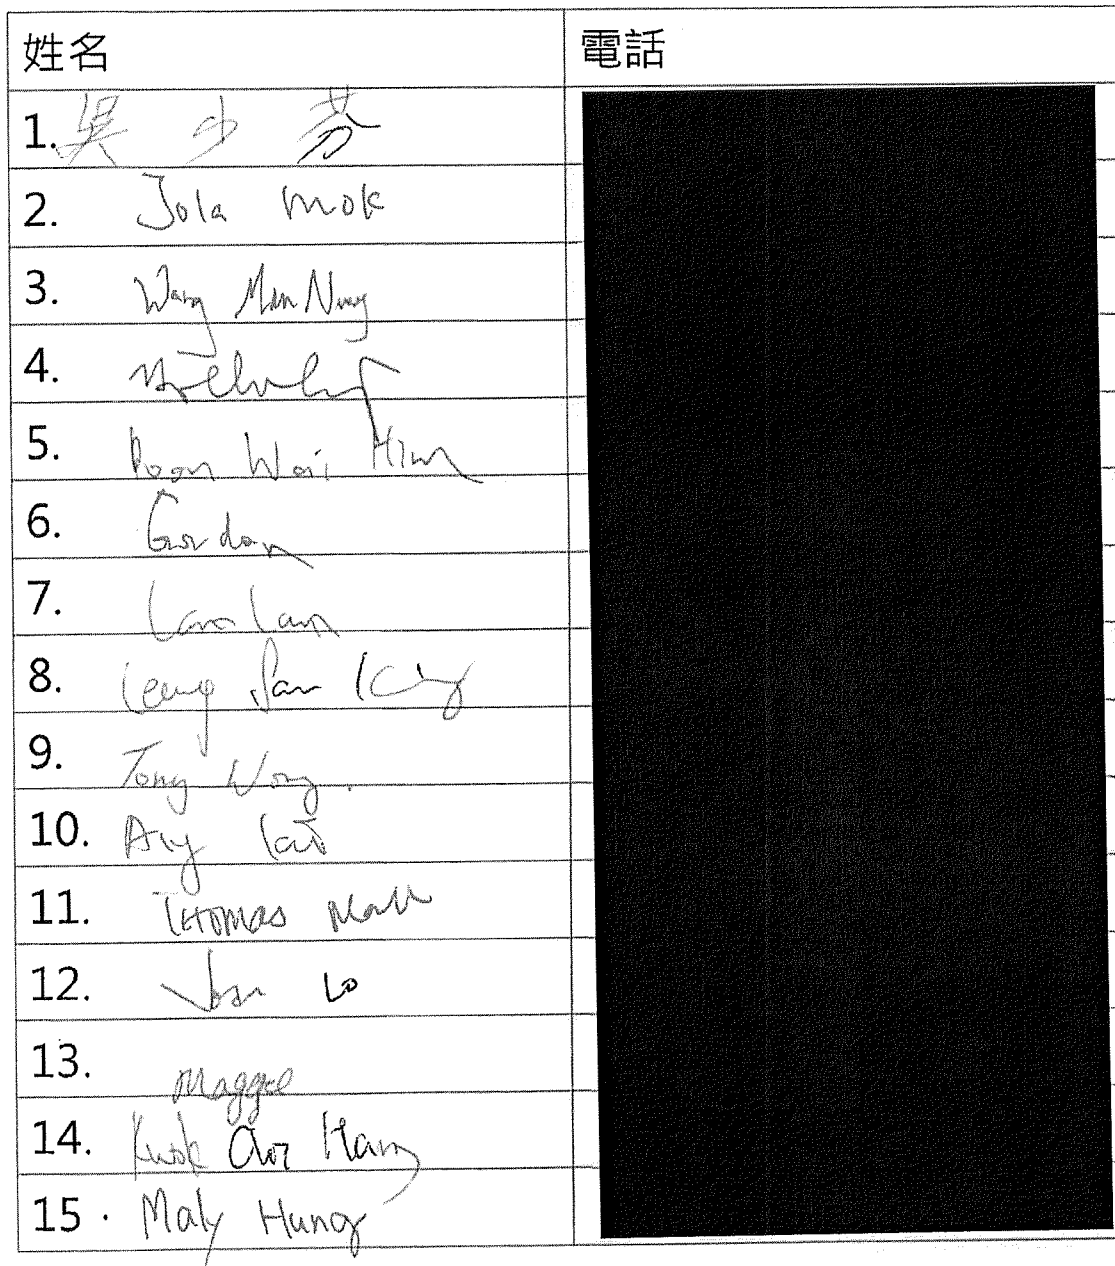 姓名 電話
1. 吳少芬
2. Jola Mok
3. Wong Man
4.
5. Poon Wai Him
6. Gordon
7. Lam
8. Leung San King
9. Tony Wong.
10. Lai
11. THOMAS
12. Lo
13. Maggie
14. Kwok Hang
15. Maly Hung